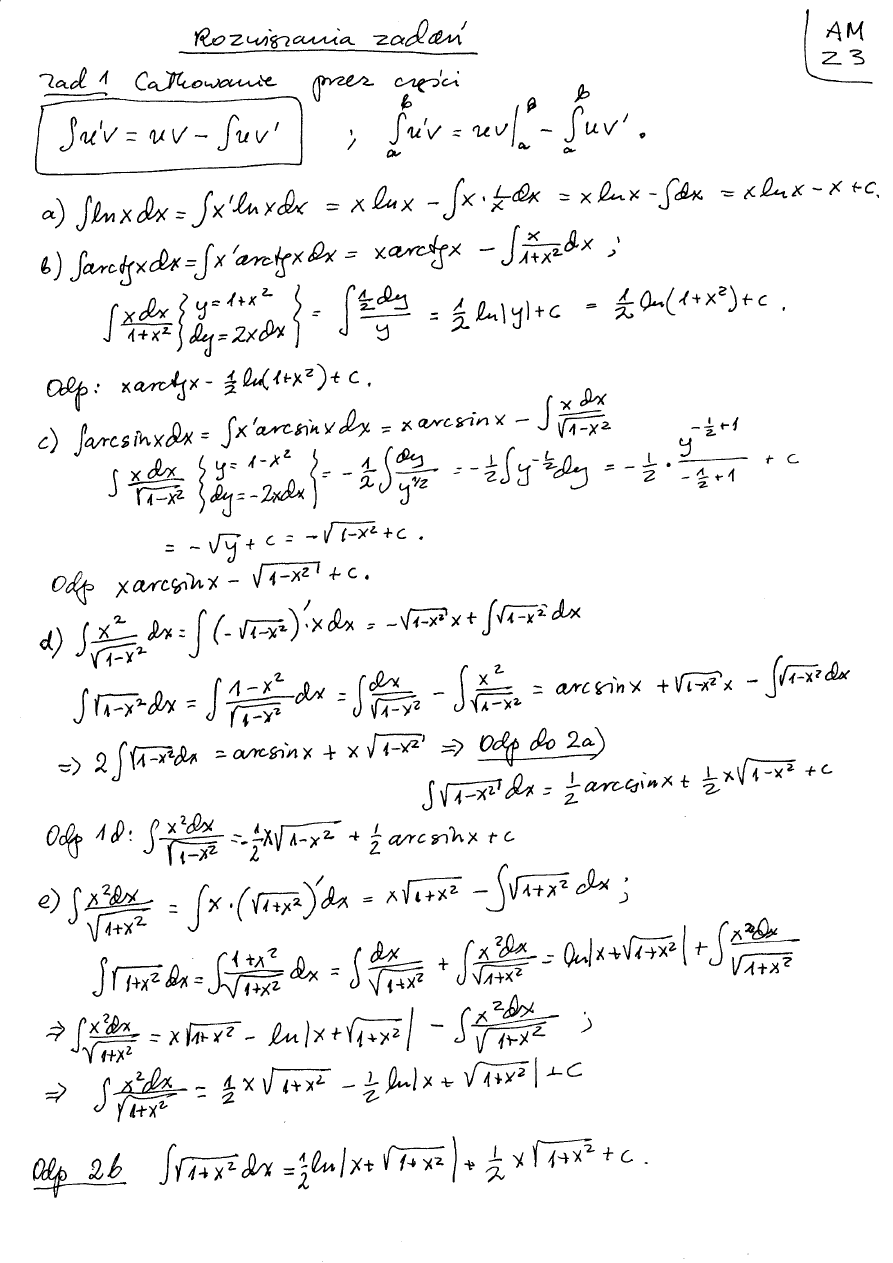 Rozwiązania zadań
AM
23
Zad 1 Całkowanie przez części
∫u'v = uv − ∫uv' ; ∫_a^b u'v = uv|_a^b − ∫_a^b uv'.
a) ∫lnxdx = ∫x'lnxdx = x lnx − ∫x·1/x dx = x lnx − ∫dx = x lnx − x + c.
b) ∫arctgxdx = ∫x'arctgxdx = xarctgx − ∫x/(1+x²) dx ;
∫xdx/(1+x²) {y = 1+x² dy = 2xdx} = ∫(1/2 dy)/y = 1/2 ln|y| + c = 1/2 ln(1+x²) + c .
Odp: xarctgx − 1/2 ln(1+x²) + c.
c) ∫arcsinxdx = ∫x'arcsinxdx = x arcsinx − ∫x dx/√(1−x²)
∫x dx/√(1−x²) {y = 1−x² dy = −2xdx} = −1/2 ∫dy/y^(1/2) = −1/2 ∫y^(−1/2) dy = −1/2 · y^(−1/2+1)/(−1/2+1) + c
= −√y + c = −√(1−x²) + c .
Odp xarcsinx − √(1−x²) + c.
d) ∫x²/√(1−x²) dx = ∫(−√(1−x²))'·x dx = −√(1−x²) x + ∫√(1−x²) dx
∫√(1−x²) dx = ∫(1−x²)/√(1−x²) dx = ∫dx/√(1−x²) − ∫x²/√(1−x²) = arcsinx + √(1−x²) x − ∫√(1−x²) dx
⇒ 2∫√(1−x²) dx = arcsinx + x√(1−x²) ⇒ Odp do 2a)
∫√(1−x²) dx = 1/2 arcsinx + 1/2 x√(1−x²) + c
Odp 1d: ∫x²dx/√(1−x²) = −1/2 x√(1−x²) + 1/2 arcsinx + c
e) ∫x²dx/√(1+x²) = ∫x·(√(1+x²))'dx = x√(1+x²) − ∫√(1+x²) dx ;
∫√(1+x²) dx = ∫(1+x²)/√(1+x²) dx = ∫dx/√(1+x²) + ∫x²dx/√(1+x²) = ln|x+√(1+x²)| + ∫x²dx/√(1+x²)
⇒ ∫x²dx/√(1+x²) = x√(1+x²) − ln|x+√(1+x²)| − ∫x²dx/√(1+x²) ;
⇒ ∫x²dx/√(1+x²) = 1/2 x√(1+x²) − 1/2 ln|x+√(1+x²)| + c
Odp 2b ∫√(1+x²) dx = 1/2 ln|x+√(1+x²)| + 1/2 x√(1+x²) + c .